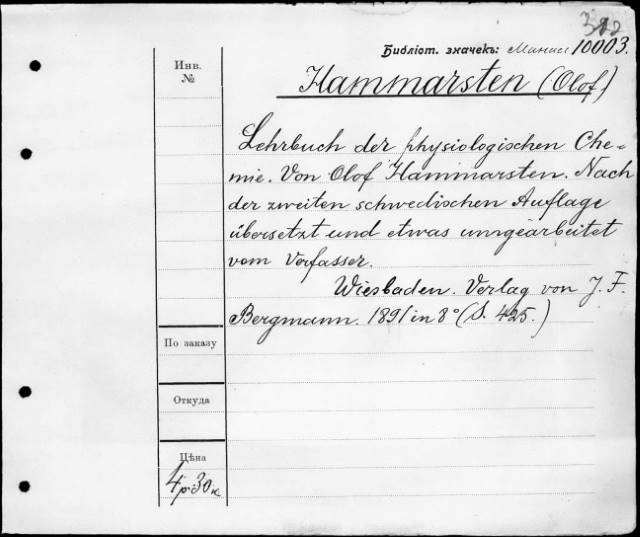 Библіот. значекъ: 10003.
Инв.
№
Hammarsten (Olof)
Lehrbuch der physiologischen Che=
mie. Von Olof Hammarsten. Nach
der zweiten schwedischen Auflage
übersetzt und etwas umgearbeitet
vom Verfasser.
Wiesbaden. Verlag von J. F.
Bergmann. 1891 in 8° (S. 425.)
По заказу
Откуда
Цѣна
4 р. 30 к